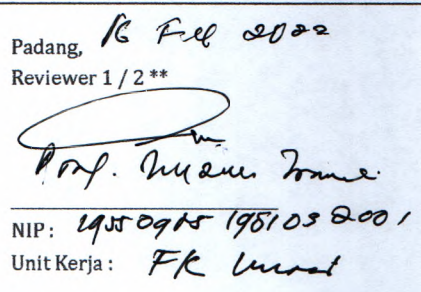 Padang, 16 Feb 2022
Reviewer 1 / 2 **
Prof.
NIP : 19550905 198103 2001
Unit Kerja : FK Unand